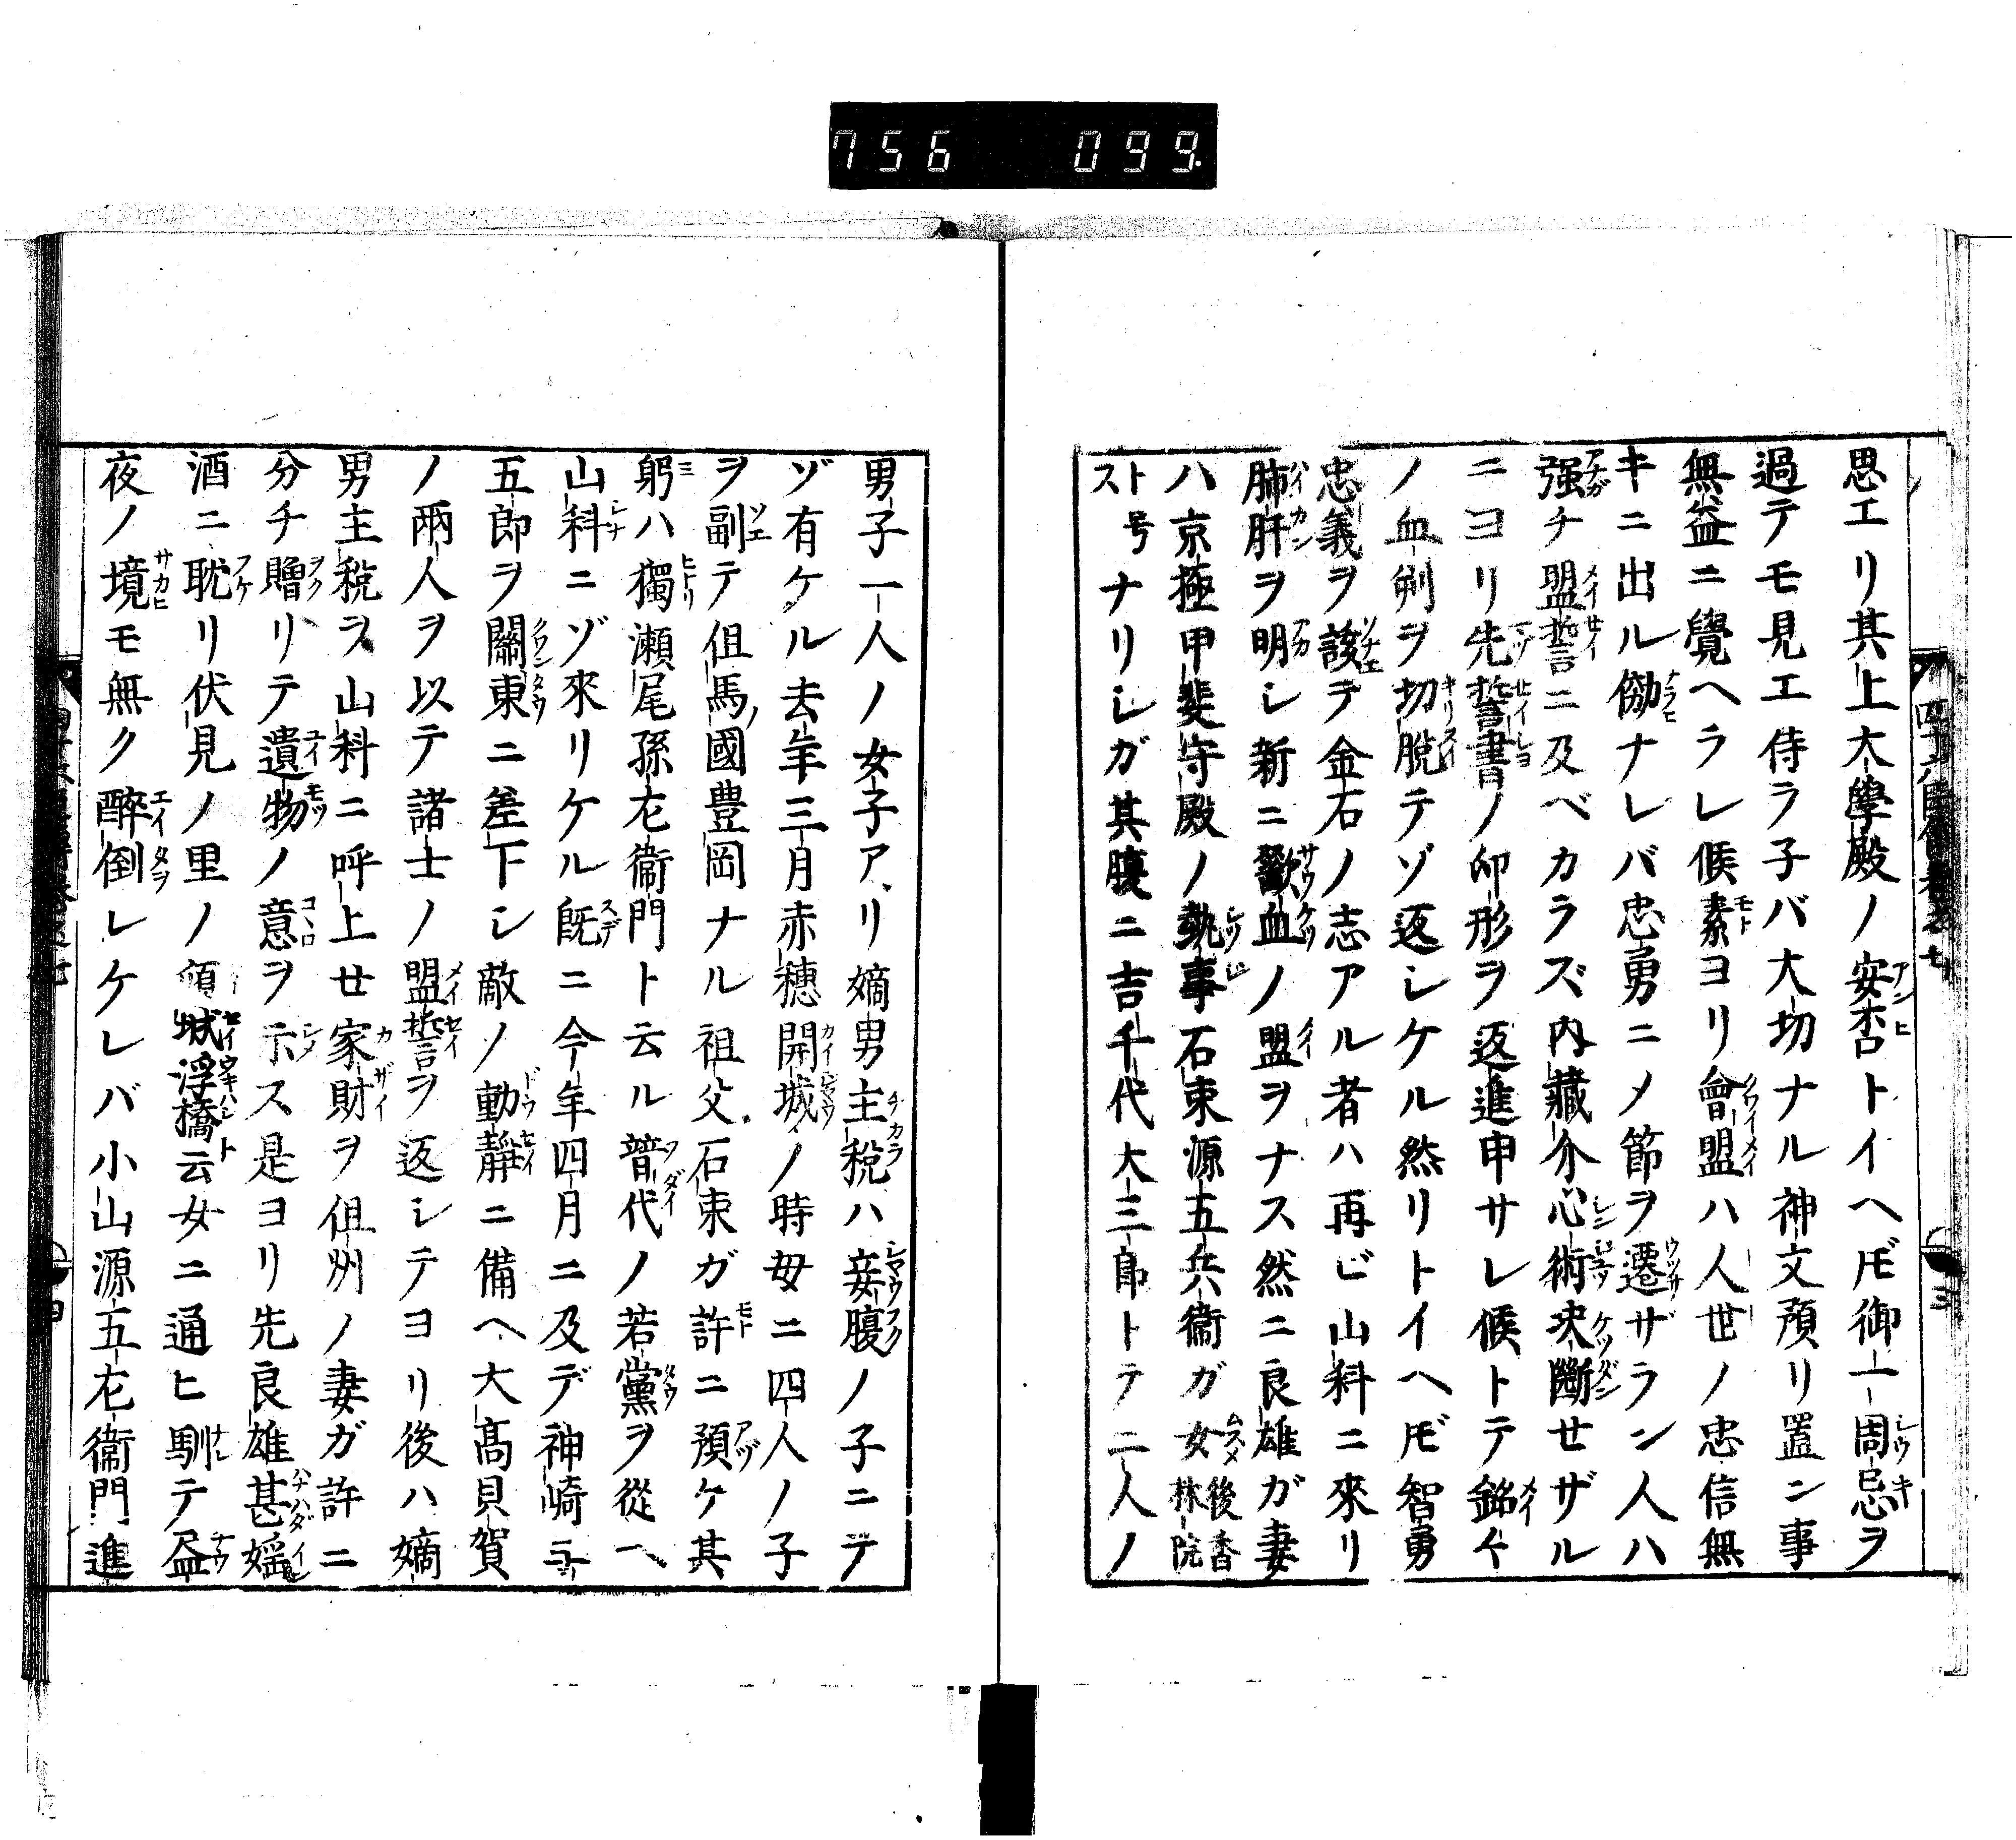 756 099
思エリ其上大學殿ノ安否トイヘ𪜈御一周忌ヲ
過テモ見エ侍ラ子バ大切ナル神文預リ置ン事
無益ニ覺ヘラレ候素ヨリ會盟ハ人世ノ忠信無
キニ出ル傚ナレバ忠勇ニメ節ヲ遷ザラン人ハ
强チ盟誓ニ及ベカラズ内藏介心術决斷せザル
ニヨリ先誓書ノ印形ヲ返進申サレ候トテ銘々
ノ血判ヲ切脱テゾ返シケル然リトイヘ𪜈智勇
忠義ヲ該テ金石ノ志アル者ハ再ビ山科ニ來リ
肺肝ヲ明シ新ニ歃血ノ盟ヲナス然ニ良雄ガ妻
ハ京極甲斐守殿ノ執事石束源五兵衞ガ女後香林院
ト号スナリシガ其腹ニ吉千代大三郎トテ二人ノ
男子一人ノ女子アリ嫡男主税ハ妾腹ノ子ニテ
ゾ有ケル去年三月赤穗開城ノ時母ニ四人ノ子
ヲ副テ但馬ノ國豊岡ナル祖父石束ガ許ニ預ケ其
躬ハ獨瀬尾孫左衞門ト云ル譜代ノ若黨ヲ從ヘ
山科ニゾ來リケル既ニ今年四月ニ及デ神崎与
五郎ヲ關東ニ差下シ敵ノ動靜ニ備ヘ大高貝賀
ノ兩人ヲ以テ諸士ノ盟誓ヲ返シテヨリ後ハ嫡
男主税ヲ山科ニ呼上せ家財ヲ但州ノ妻ガ許ニ
分チ贈リテ遺物ノ意ヲ示ス是ヨリ先良雄甚婬
酒ニ耽リ伏見ノ里ノ傾城浮橋ト云女ニ通ヒ馴テ晝
夜ノ境モ無ク醉倒レケレバ小山源五左衞門進